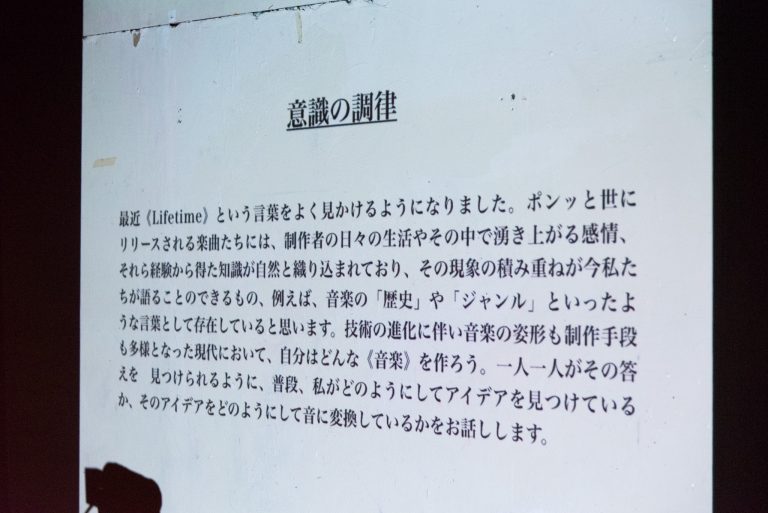 意識の調律
最近《Lifetime》という言葉をよく見かけるようになりました。ポンッと世に
リリースされる楽曲たちには、制作者の日々の生活やその中で湧き上がる感情、
それら経験から得た知識が自然と織り込まれており、その現象の積み重ねが今私た
ちが語ることのできるもの、例えば、音楽の「歴史」や「ジャンル」といったよ
うな言葉として存在していると思います。技術の進化に伴い音楽の姿形も制作手段
も多様となった現代において、自分はどんな《音楽》を作ろう。一人一人がその答
えを　見つけられるように、普段、私がどのようにしてアイデアを見つけている
か、そのアイデアをどのようにして音に変換しているかをお話しします。